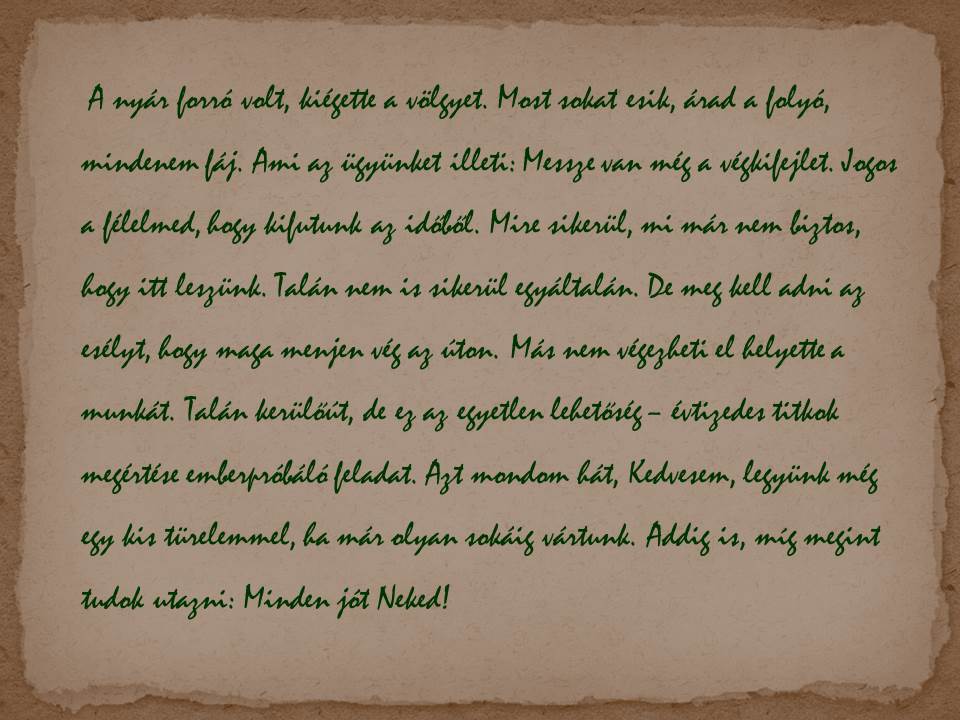 A nyár forró volt, kiégette a völgyet. Most sokat esik, árad a folyó,
mindenem fáj. Ami az ügyünket illeti: Messze van még a végkifejlet. Jogos
a félelmed, hogy kifutunk az időből. Mire sikerül, mi már nem biztos,
hogy itt leszünk. Talán nem is sikerül egyáltalán. De meg kell adni az
esélyt, hogy maga menjen vég az úton. Más nem végezheti el helyette a
munkát. Talán kerülőút, de ez az egyetlen lehetőség – évtizedes titkok
megértése emberpróbáló feladat. Azt mondom hát, Kedvesem, legyünk még
egy kis türelemmel, ha már olyan sokáig vártunk. Addig is, míg megint
tudok utazni: Minden jót Neked!